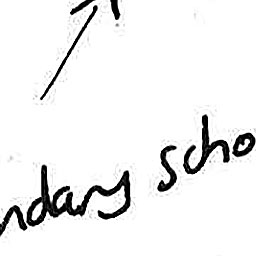 ndary scho